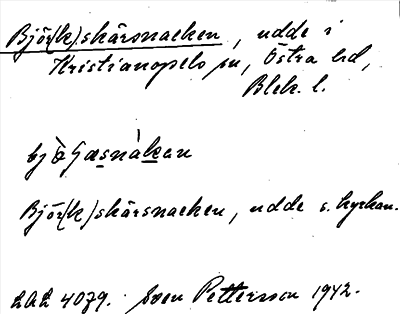 Björ(k)skärsnacken, udde i
Kristianopels sn, Östra hd,
Blek. l.
Björ(k)skärsnacken, udde s. kyrkan.
LAL 4079. Sven Pettersson 1942.